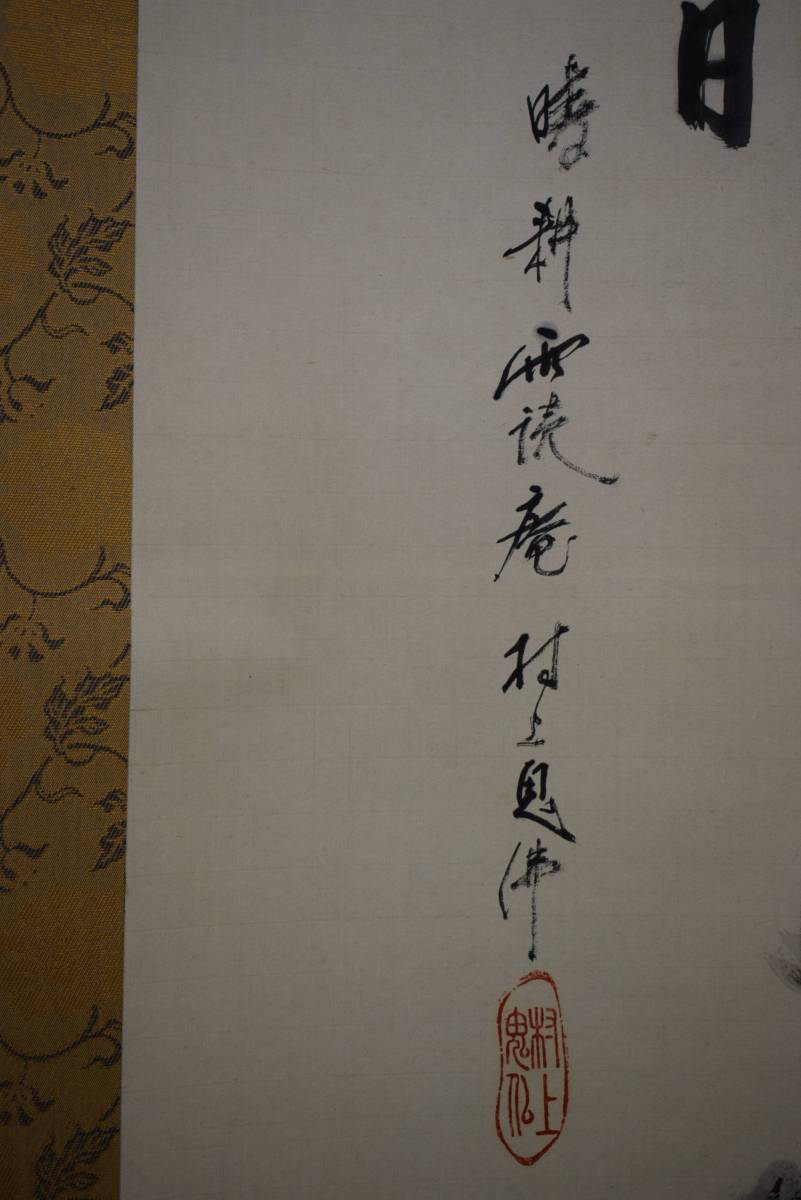 日
晴耕雨読庵 村上鬼佛
村上
鬼仏